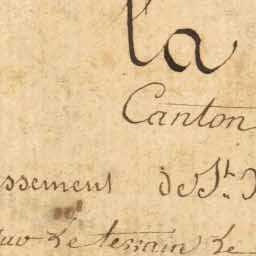 la
Canton
ssement de St.
le terrain le